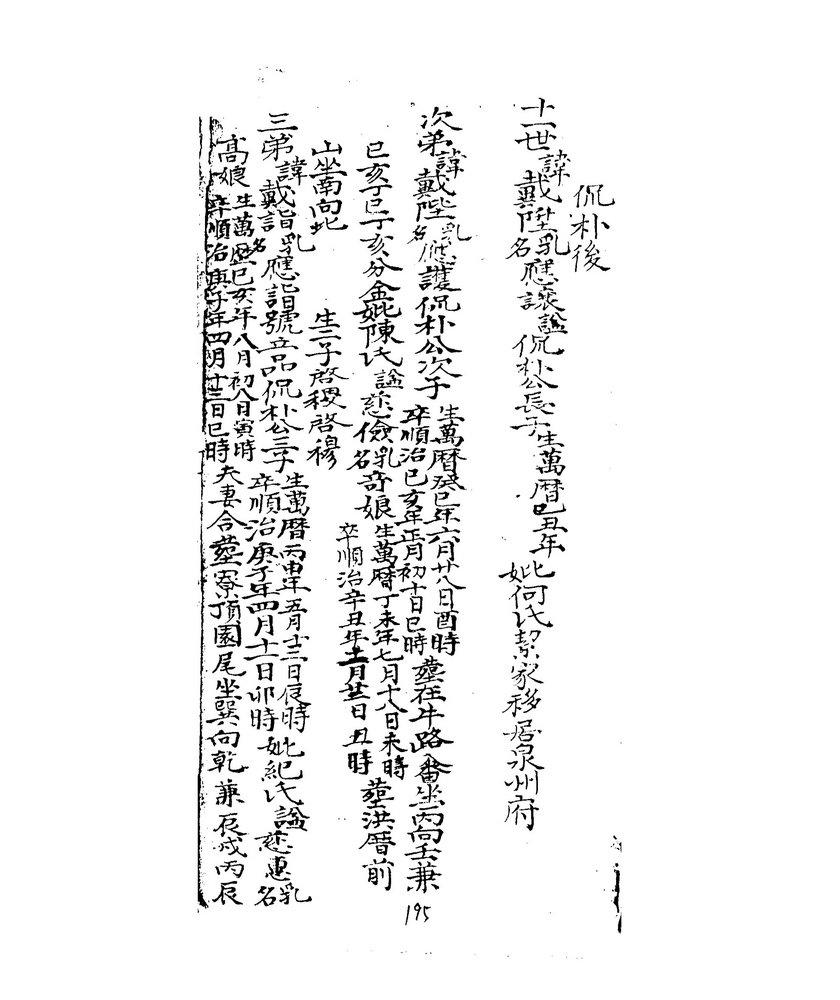 侃朴後
十一世諱戴陞乳名應讓謚侃朴公長子生萬曆己丑年 妣何氏絜家移居泉州府
次弟諱戴陛乳名應護侃朴公次子生萬曆癸巳年六月廿八日酉時卒順治己亥年正月初十日巳時葬在牛路畬坐丙向壬兼
巳亥丁巳丁亥分金妣陳氏謚慈儉乳名奇娘生萬曆丁未年七月十八日未時卒順治辛丑年十一月廿三日丑時葬洪厝前
山坐南向北 生二子啓稷啓穆
三弟諱戴詣乳名應詣號立品侃朴公三子生萬曆丙申年五月十三日辰時卒順治庚子年四月十一日卯時妣紀氏謚慈惠乳名
髙娘生萬曆己亥年八月初八日寅時卒順治庚子年四月十三日巳時夫妻合葬寮頂園尾坐巽向乾兼辰戌丙辰
195